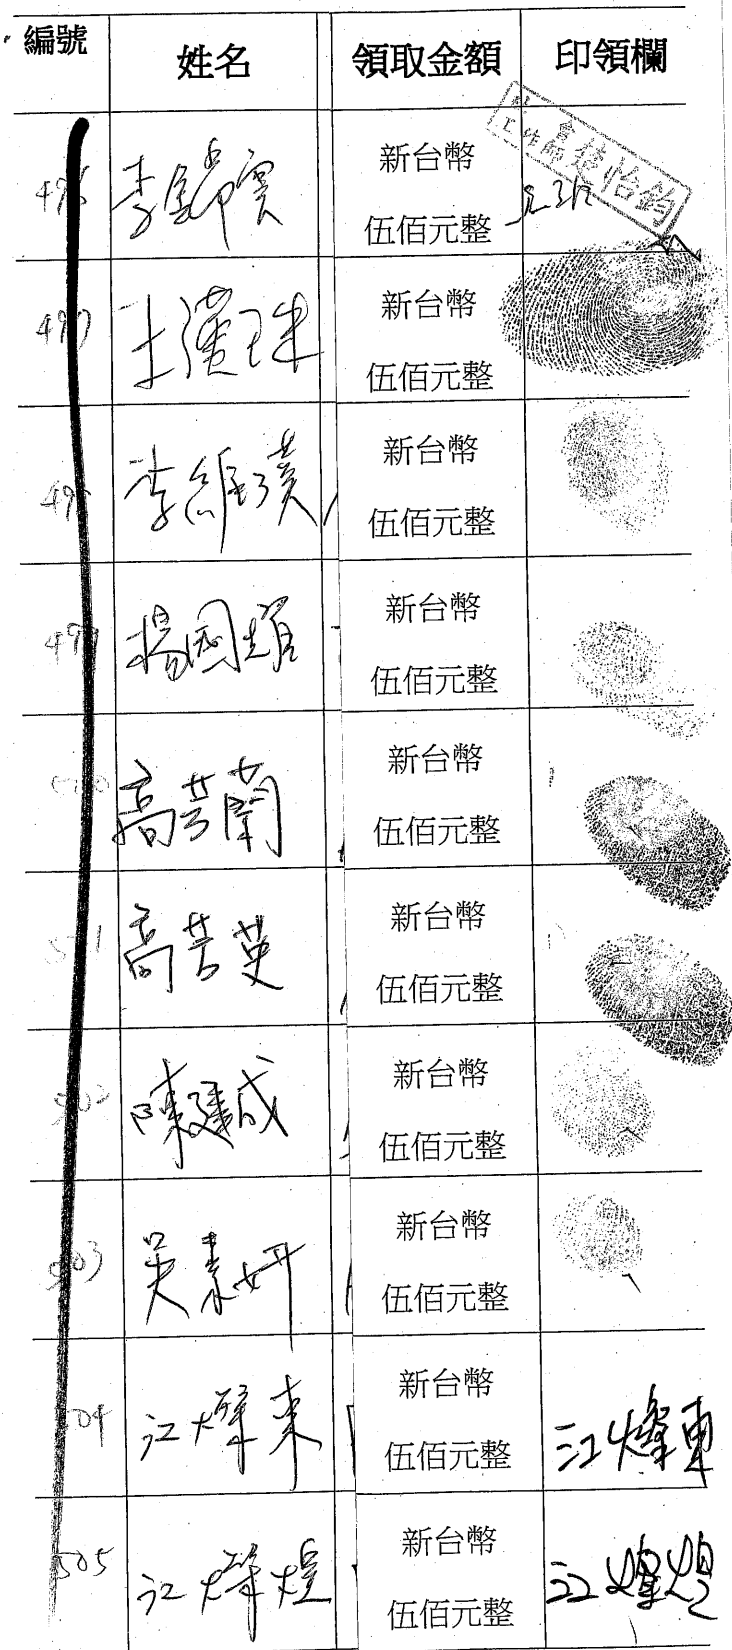 編號 姓名 領取金額 印領欄
李錦寶 新台幣
伍佰元整
497 王漢珠 新台幣
伍佰元整
李維瑛 新台幣
伍佰元整
499 楊國耀 新台幣
伍佰元整
500 高芳蘭 新台幣
伍佰元整
501 高芳英 新台幣
伍佰元整
502 陳建成 新台幣
伍佰元整
503 吳素妍 新台幣
伍佰元整
504 江燦東 新台幣
伍佰元整 江燦東
505 江燦煌 新台幣
伍佰元整 江燦煌